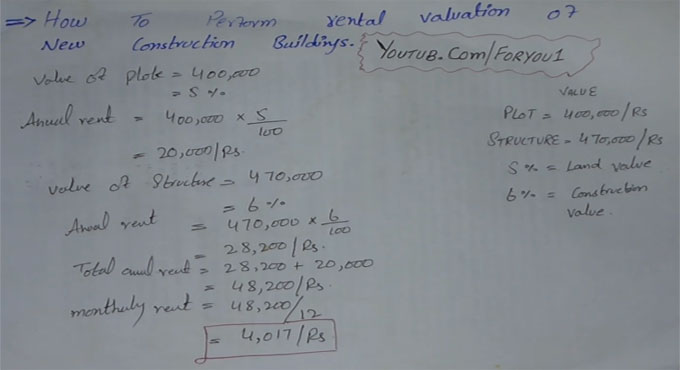 => How To Perform rental valuation of
New Construction Buildings.
YOUTUB.COM/FORYOU1
Value of Plote = 400,000
= 5 %
Anual rent = 400,000 × 5/100
= 20,000/Rs.
Value of Structure = 470,000
= 6 %
Anual rent = 470,000 × 6/100
= 28,200/Rs.
Total anul rent = 28,200 + 20,000
= 48,200/Rs.
monthuly rent = 48,200/12
= 4,017/Rs
VALUE
PLOT = 400,000/Rs
STRUCTURE = 470,000/Rs
5% = Land value
6% = Construction
value.